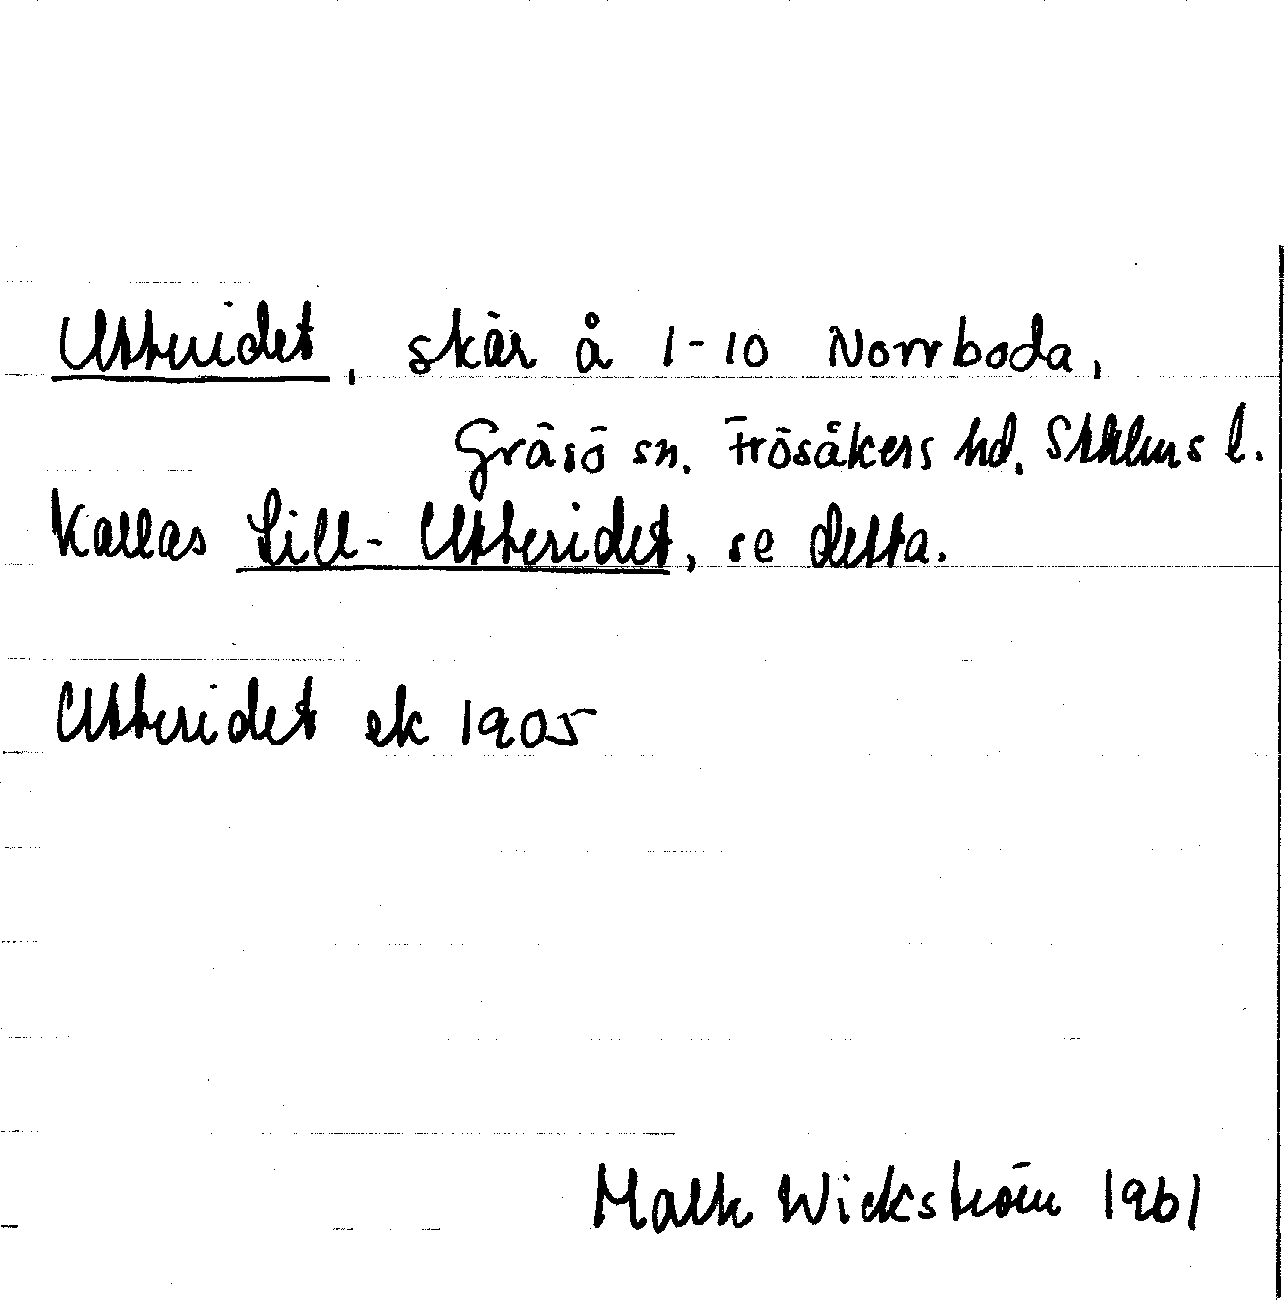 Utteridet, skär å 1-10 Norrboda,
Gräsö sn. Frösåkers hd. Sthlms l.
Kallas Lill-Utteridet, se detta.
Utteridet ek 1905
Wickström 1961